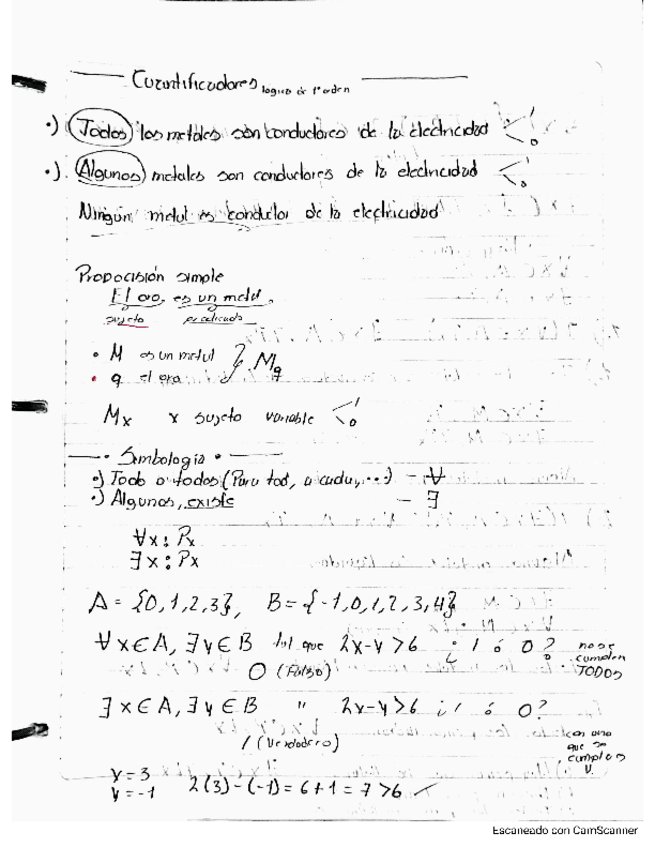 Cuantificadores logica de 1° orden
•) Todos los metales son conductores de la electricidad < 1 0
•) Algunos metales son conductores de la electricidad < 1 0
Ningún metal es conductor de la electricidad
Proposición simple
El oro, es un metal.
sujeto predicado
• M es un metal } Mq
• q el oro
Mx x sujeto variable < 1 0
• Simbología •
•) Todo o todos (Para tod, a cada, ...) - ∀
•) Algunos, existe - ∃
∀x : Px
∃x : Px
A = {0, 1, 2, 3}, B = {-1, 0, 1, 2, 3, 4}
∀x∈A, ∃y∈B tal que 2x-y>6 ¿ 1 ó 0? no se cumplen TODOS
0 (Falso)
∃x∈A, ∃y∈B " 2x-y>6 ¿1 ó 0?
1 (Verdadero) con uno que se cumple es V.
y = 3
y = -1 2(3)-(-1) = 6+1 = 7>6 ✓
Escaneado con CamScanner